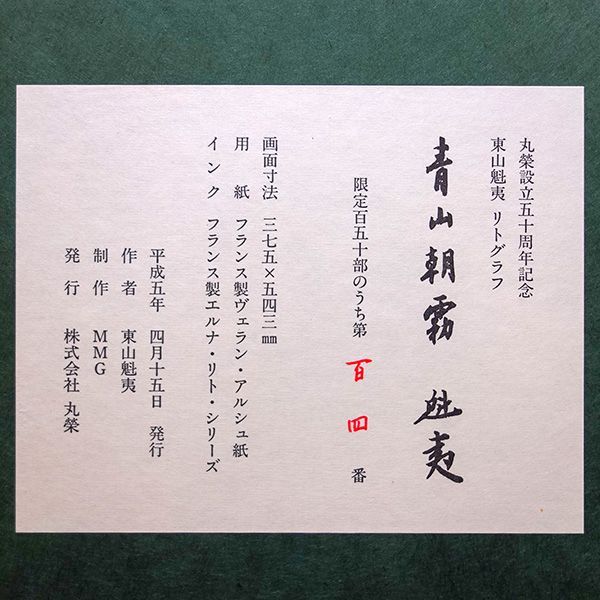 丸榮設立五十周年記念
東山魁夷 リトグラフ
青山朝霧 魁夷
限定百五十部のうち第 百四 番
画面寸法 三七五×五四三㎜
用紙 フランス製ヴェラン・アルシュ紙
インク フランス製エルナ・リト・シリーズ
平成五年 四月十五日 発行
作者 東山魁夷
制作 MMG
発行 株式会社 丸榮